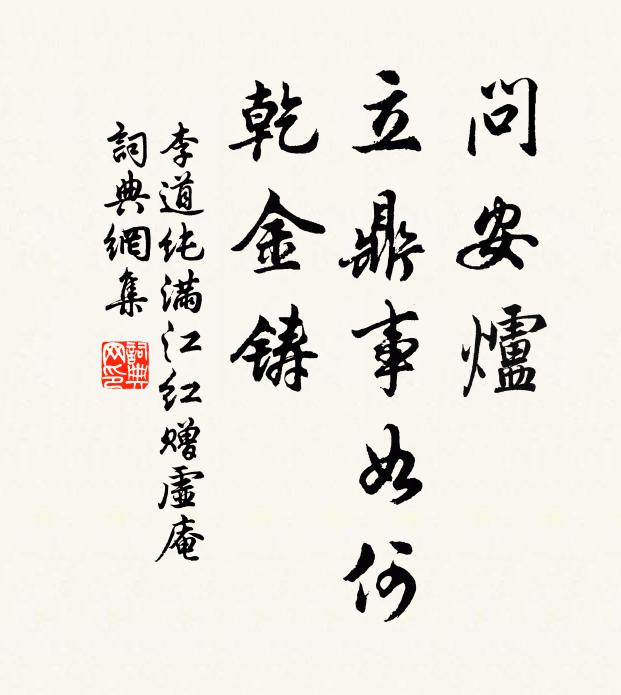 問安爐
立鼎事如何
乾金鑄
李道純滿江紅贈虛庵
詞典網集
詞典
网印